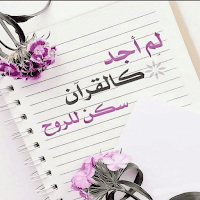 لم أجد
كالقرآن
سكن للروح